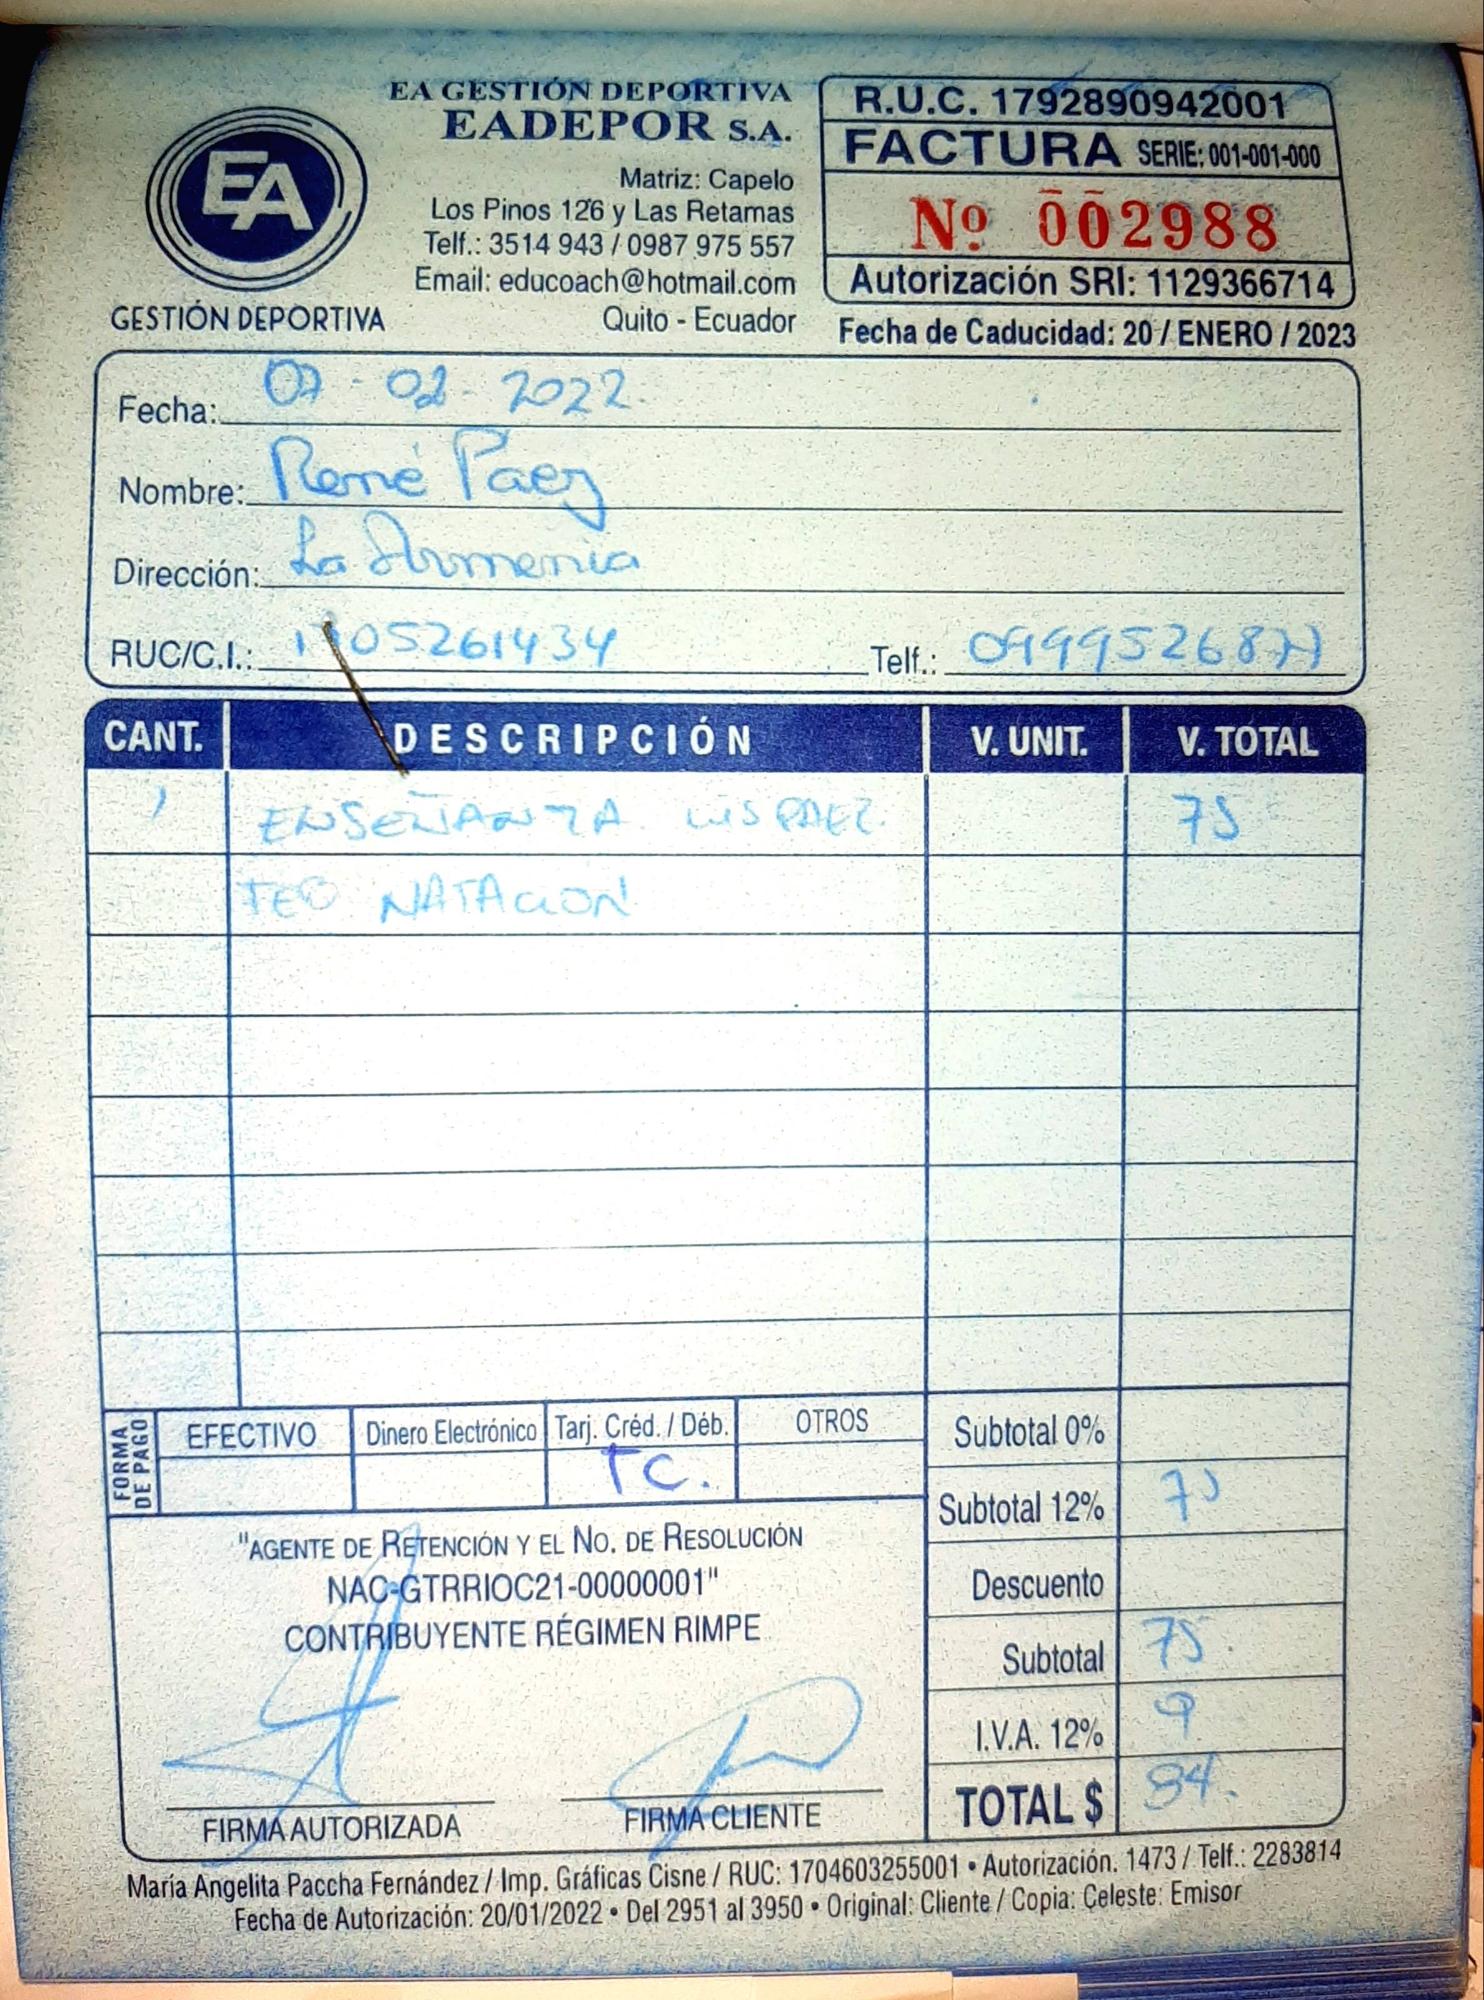 EA
GESTIÓN DEPORTIVA
EA GESTIÓN DEPORTIVA
EADEPOR S.A.
Matriz: Capelo
Los Pinos 126 y Las Retamas
Telf.: 3514 943 / 0987 975 557
Email: educoach@hotmail.com
Quito - Ecuador
R.U.C. 1792890942001
FACTURA SERIE: 001-001-000
Nº 002988
Autorización SRI: 1129366714
Fecha de Caducidad: 20 / ENERO / 2023
Fecha: 07-02-2022.
Nombre: René Paez
Dirección: La Armenia
RUC/C.I.: 1705261434 Telf.: 0999526877
CANT. DESCRIPCIÓN V. UNIT. V. TOTAL
1 ENSEÑANZA LUIS PAEZ. 75
FEB NATACION
FORMA DE PAGO
EFECTIVO Dinero Electrónico Tarj. Créd. / Déb. OTROS
TC.
Subtotal 0%
Subtotal 12% 75
Descuento
Subtotal 75.
I.V.A. 12% 9
TOTAL $ 84.
"AGENTE DE RETENCIÓN Y EL NO. DE RESOLUCIÓN
NAC-GTRRIOC21-00000001"
CONTRIBUYENTE RÉGIMEN RIMPE
FIRMA AUTORIZADA FIRMA CLIENTE
María Angelita Paccha Fernández / Imp. Gráficas Cisne / RUC: 1704603255001 • Autorización. 1473 / Telf.: 2283814
Fecha de Autorización: 20/01/2022 • Del 2951 al 3950 • Original: Cliente / Copia: Celeste: Emisor